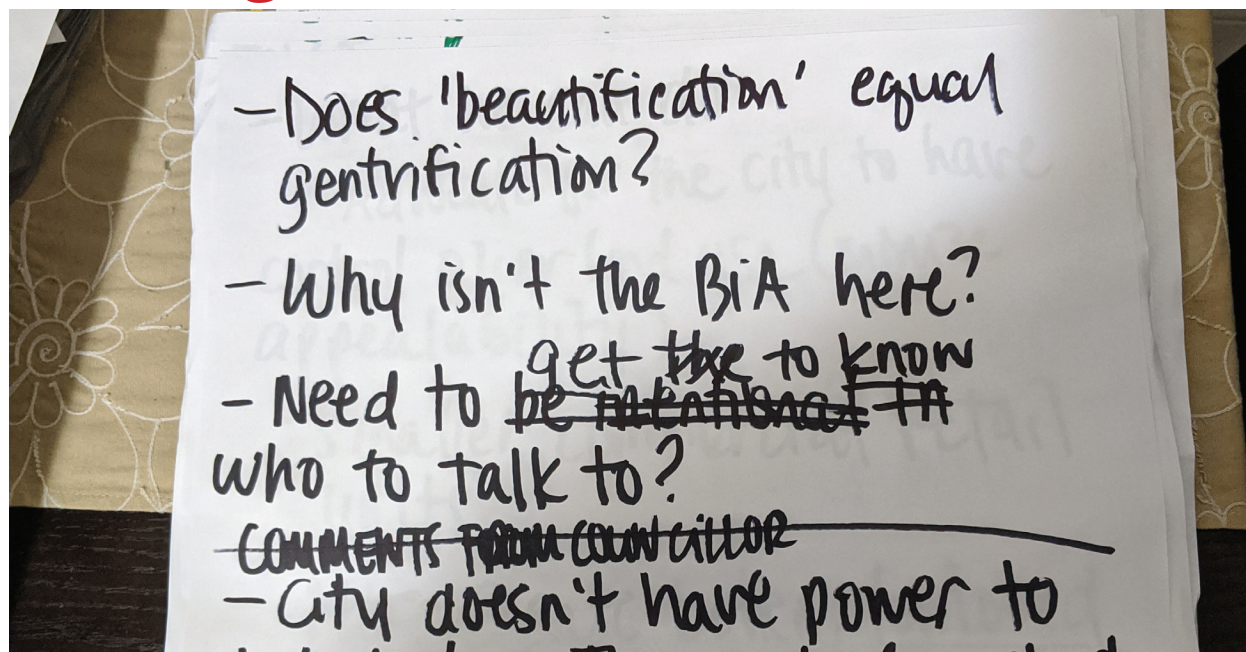 - Does 'beautification' equal
gentrification?
- Why isn't the BiA here?
get to know
- Need to be intentional in
who to talk to?
COMMENTS FROM COUNCILLOR
- City doesn't have power to